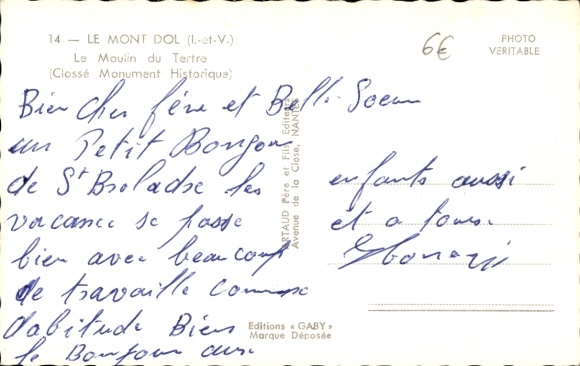 14 — LE MONT DOL (I.-et-V.)
Le Moulin du Tertre
(Classé Monument Historique)
6€
PHOTO
VERITABLE
Bien cher frére et Belle Soeur
un Petit Bonjour
de St Broladre les
vacance se passe
bien avec beaucoup
de travaille comme
dabitude Bien
le Bonjour aux
enfants aussi
et a tous
ARTAUD Père et Fils, Editeurs
Avenue de la Close, NANTES
Editions « GABY »
Marque Déposée